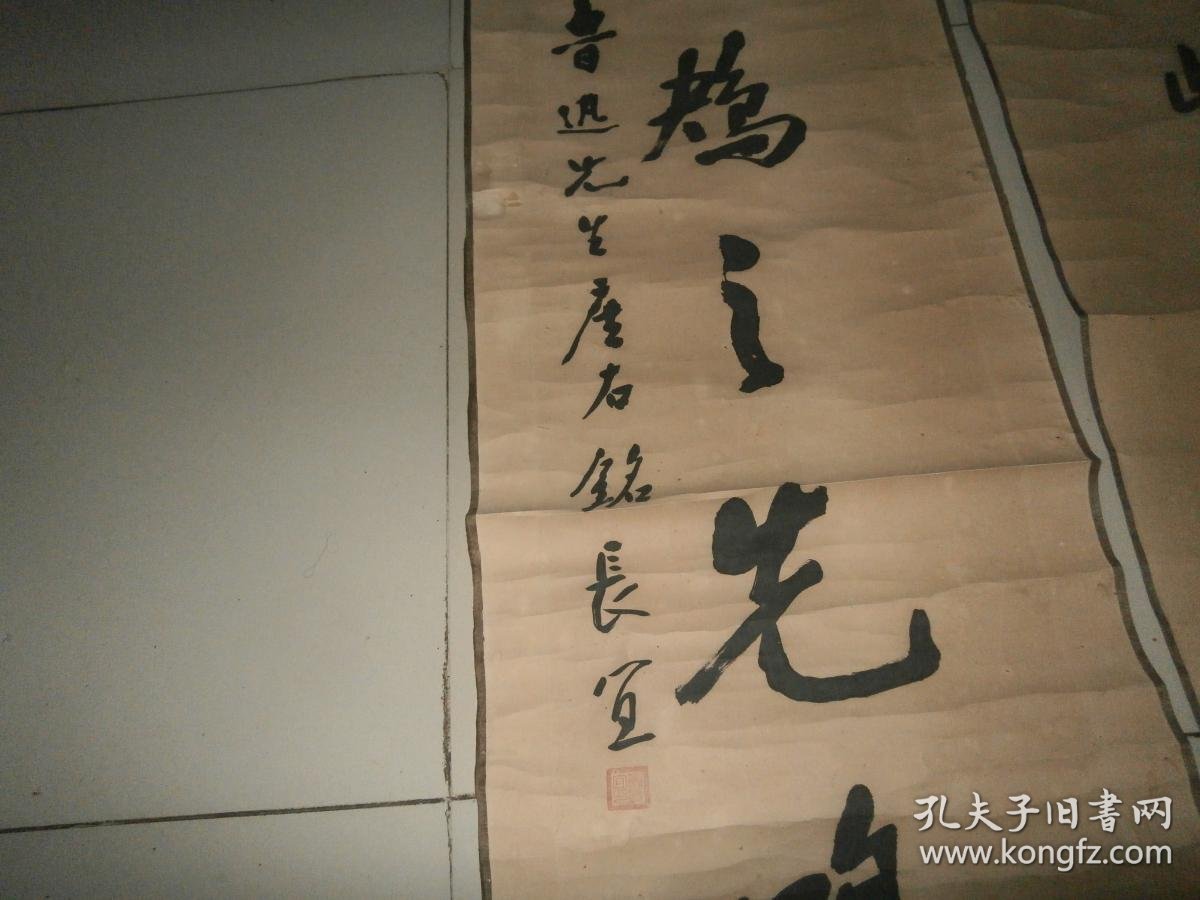 鴂之先
魯迅先生座右銘長宜
孔夫子旧書网
www.kongfz.com